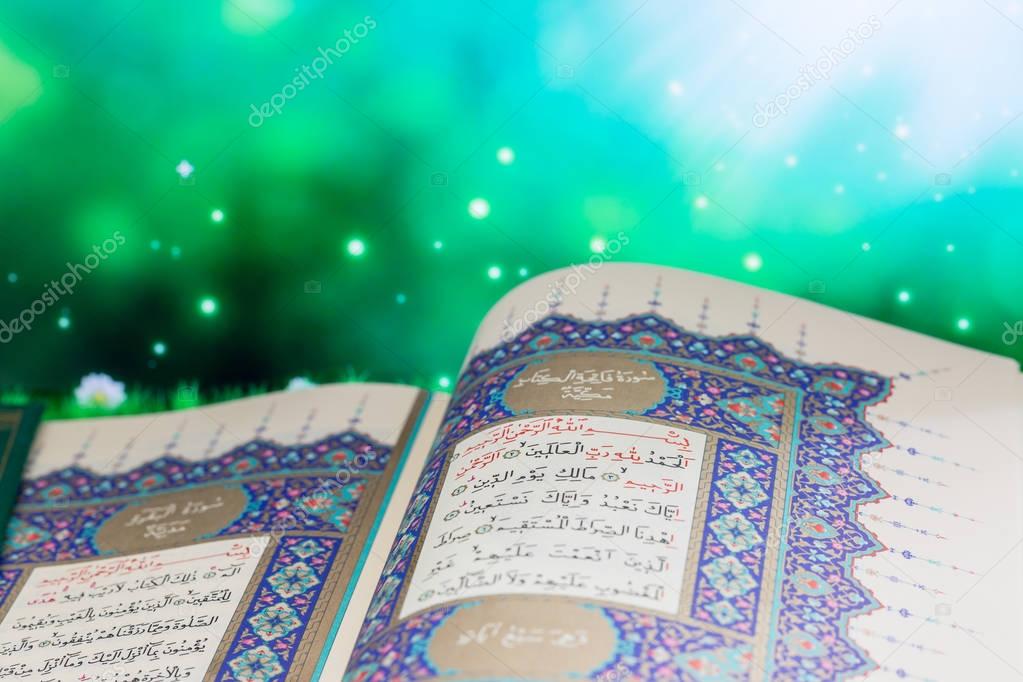 سُورَةُ فَاتِحَةِ الْكِتَابِ
مَكِّيَّةٌ
بِسْمِ اللّٰهِ الرَّحْمٰنِ الرَّحِيمِ
اَلْحَمْدُ لِلّٰهِ رَبِّ الْعَالَمِينَ ۙ اَلرَّحْمٰنِ
الرَّحِيمِ ۙ مَالِكِ يَوْمِ الدِّينِ ۜ
اِيَّاكَ نَعْبُدُ وَاِيَّاكَ نَسْتَعِينُ ۜ
اِهْدِنَا الصِّرَاطَ الْمُسْتَقِيمَ ۙ صِرَاطَ
الَّذِينَ اَنْعَمْتَ عَلَيْهِمْ ۙ غَيْرِ
الْمَغْضُوبِ عَلَيْهِمْ وَلَا الضَّالِّينَ
وَهِيَ سَبْعُ اٰيَاتٍ
سُورَةُ الْبَقَرَةِ
مَدَنِيَّةٌ
بِسْمِ اللّٰهِ الرَّحْمٰنِ الرَّحِيمِ
الٓمٓ ۚ ذٰلِكَ الْكِتَابُ لَا رَيْبَ فِيهِ هُدًى
لِلْمُتَّقِينَ ۙ اَلَّذِينَ يُؤْمِنُونَ بِالْغَيْبِ وَيُقِيمُونَ
الصَّلٰوةَ وَمِمَّا رَزَقْنَاهُمْ يُنْفِقُونَ ۙ وَالَّذِينَ
يُؤْمِنُونَ بِمَا اُنْزِلَ اِلَيْكَ وَمَا اُنْزِلَ مِنْ قَبْلِكَ
وَبِالْاٰخِرَةِ هُمْ
depositphotos
depositphotos
depositphotos
depositphotos